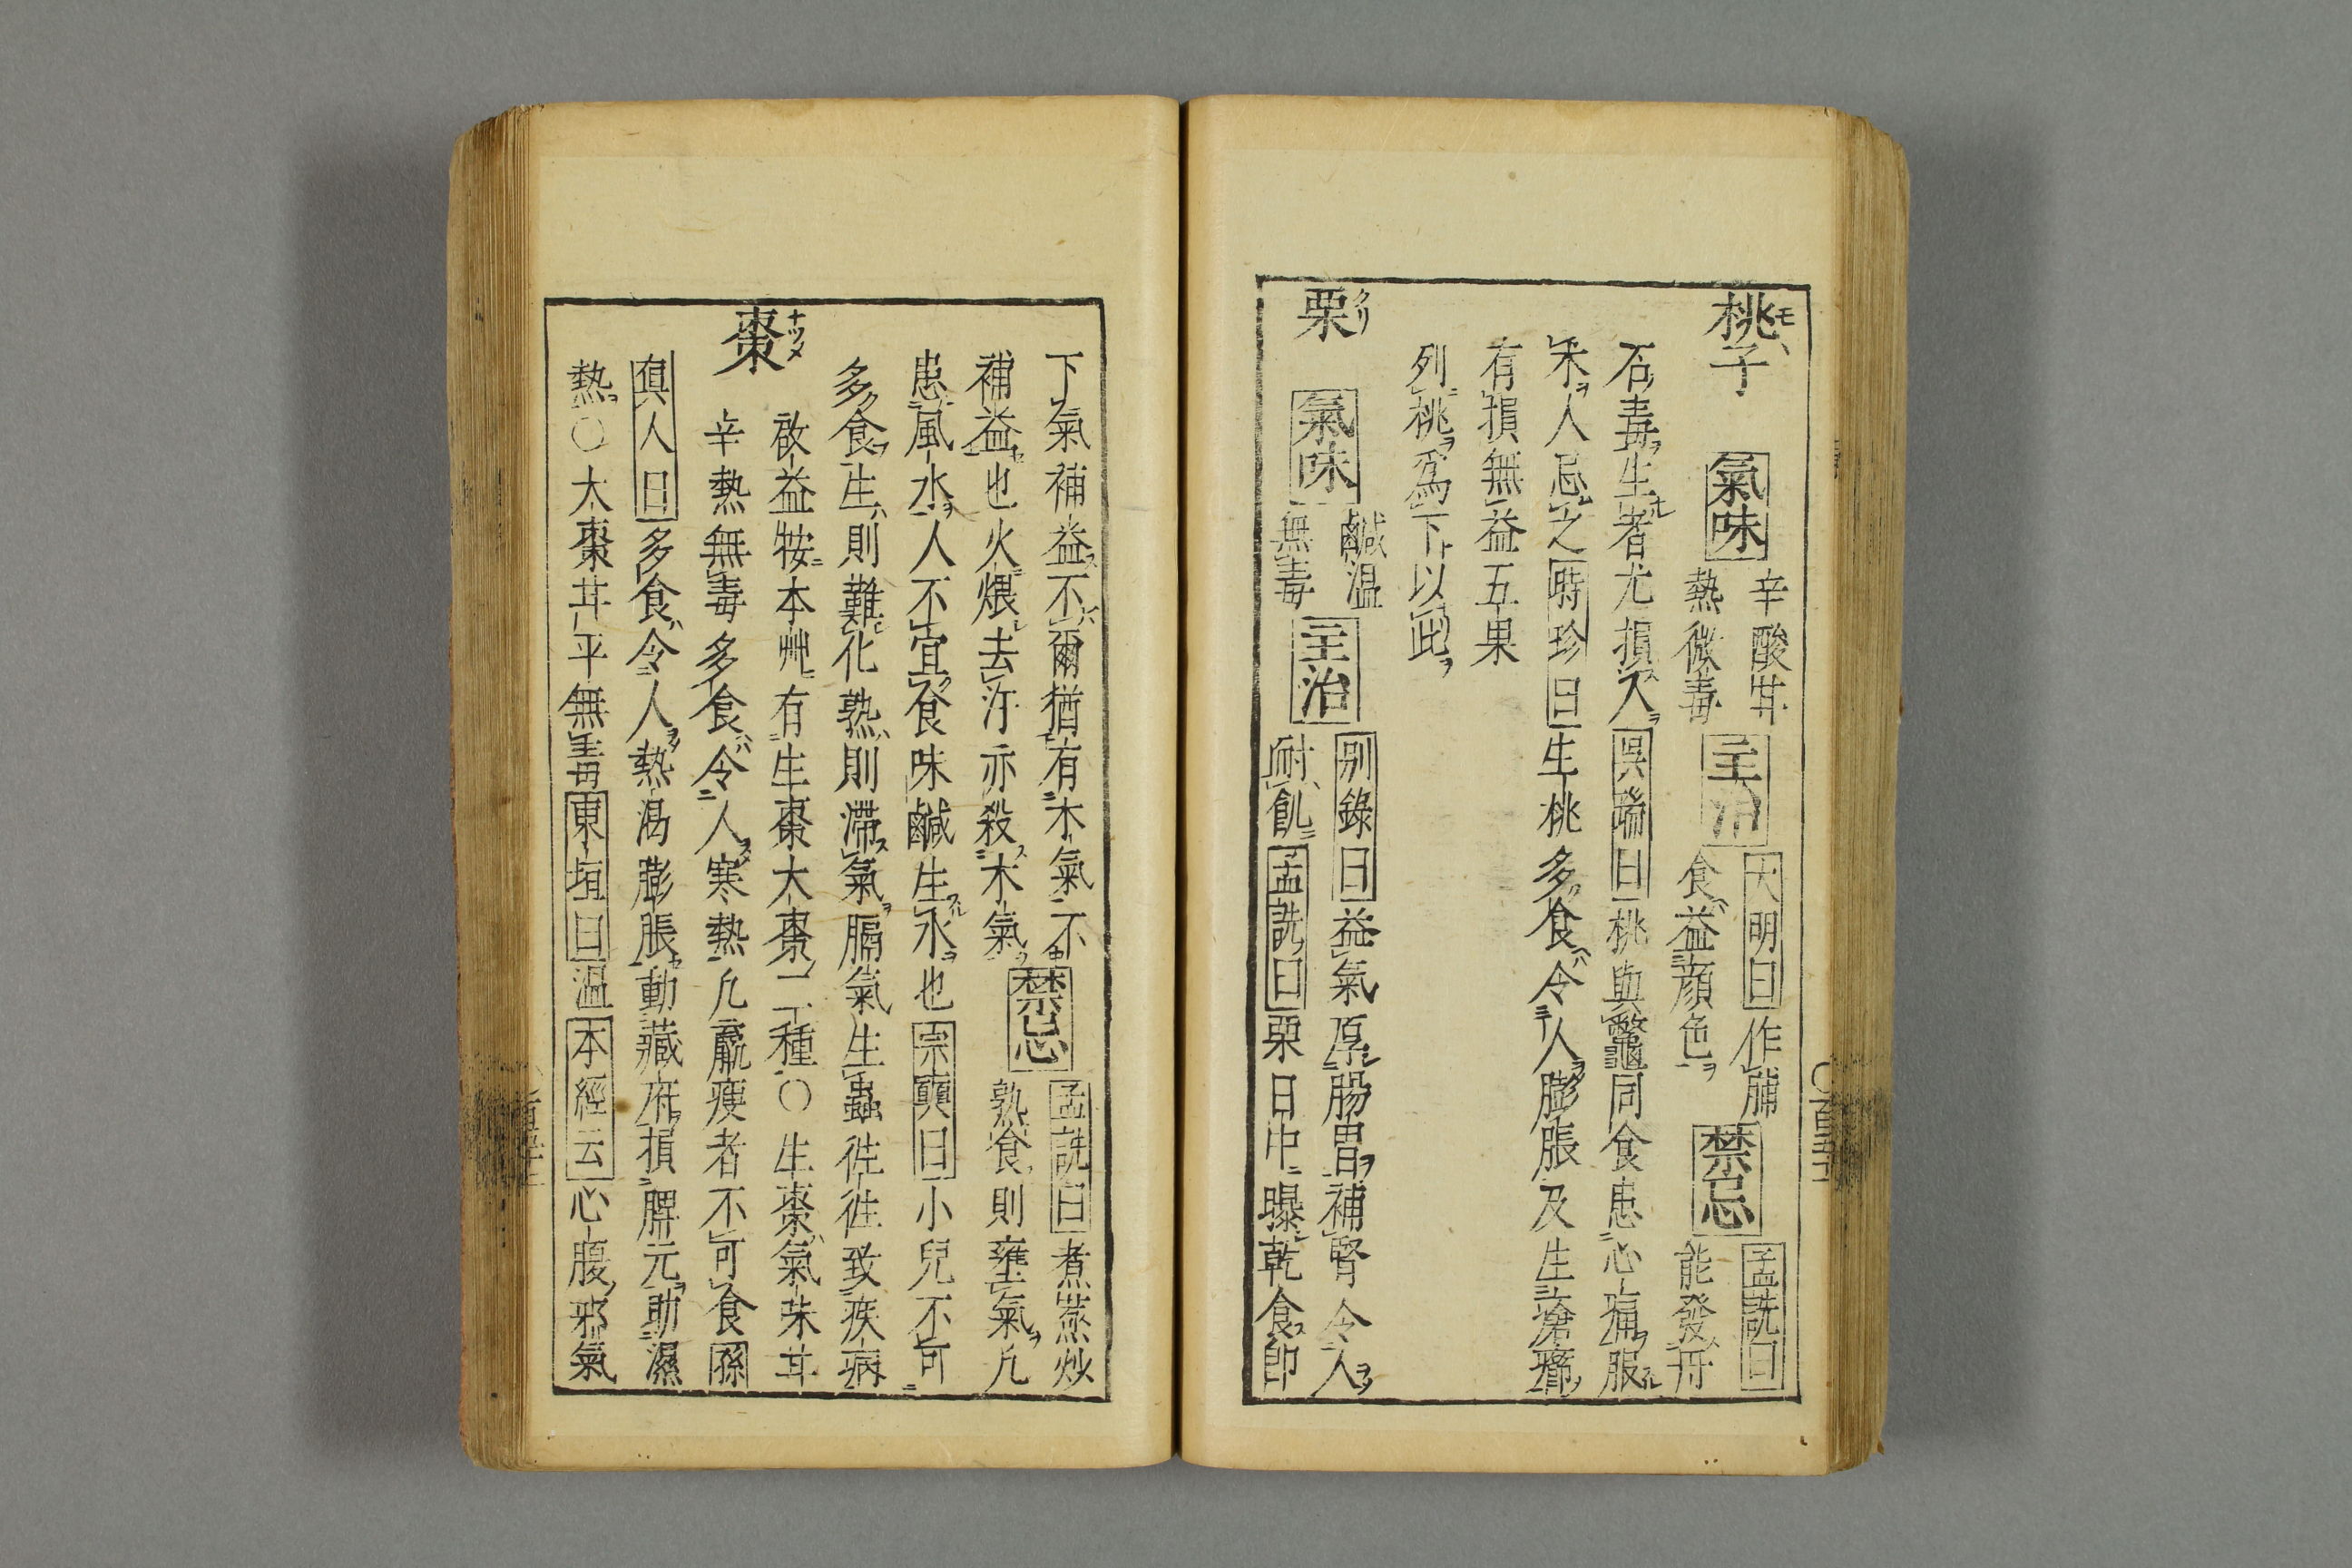 桃子 氣味 辛酸甘熱微毒 主治 大明曰作脯食益顔色 禁忌 孟詵曰能發丹
石毒生者尤損人 吳瑞曰桃與鼈同食患心痛服
朮人忌之 時珍曰生桃多食令人膨脹及生瘡癤
有損無益五果
列桃爲下以此
栗 氣味 鹹温無毒 主治 别錄曰益氣厚腸胃補腎令人
耐飢 孟詵曰栗日中曝乾食即
下氣補益不爾猶有木氣不 禁忌 孟詵曰煮蒸炒
補益也火煨去汗亦殺木氣 熟食則壅氣凡
患風水人不宜食味鹹生水也 宗奭曰小兒不可
多食生則難化熟則滯氣膈氣生蟲徃徃致疾病
棗 啟益按本艸有生棗大棗二種〇生棗氣味甘
辛熱無毒多食令人寒熱凢羸瘦者不可食 孫
眞人曰多食令人熱渴膨脹動藏府損脾元助濕
熱〇大棗甘平無毒 東垣曰温 本經云心腹邪氣